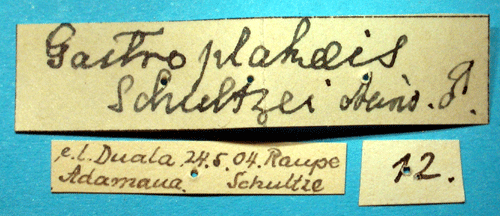 Gastroplakæis
Schultzei Auriv. ♂.
e.l. Duala. 24.5.04. Raupe
Adamaua. Schultze
12.